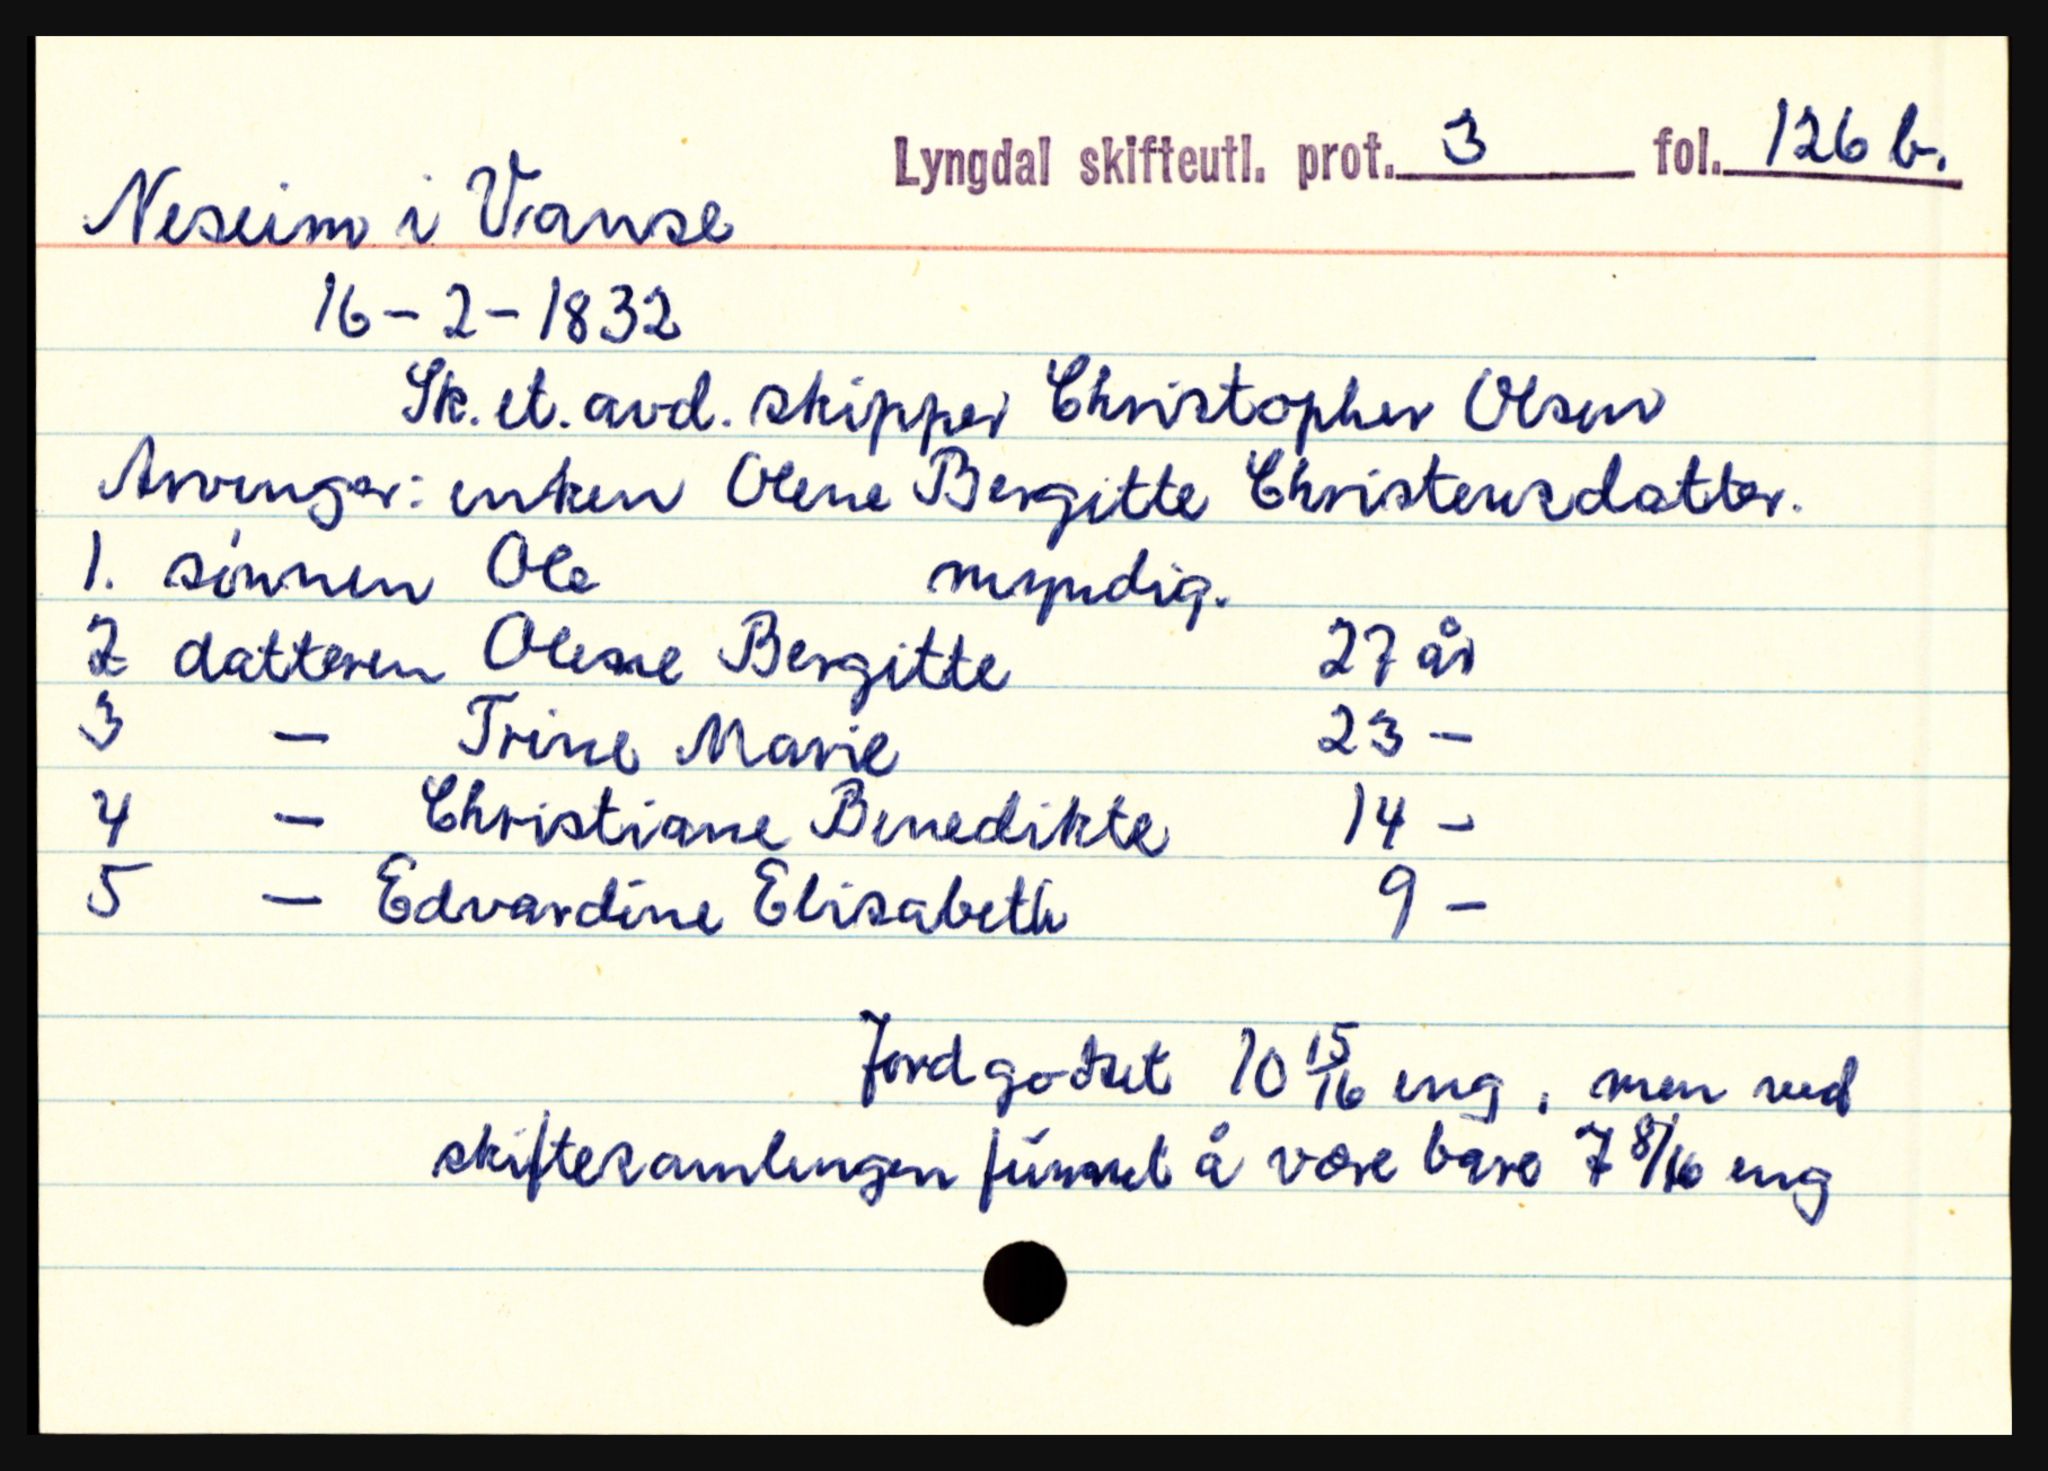 Lyngdal skifteutl. prot. 3 fol. 126 b.
Neseim i Vanse
16-2-1832
Sk. et. avd. skipper Christopher Olsen
Arvinger: enken Olene Bergitte Christensdatter.
1. sønnen Ole myndig.
2 datteren Olene Bergitte 27 år
3 - Trine Marie 23 -
4 - Christiane Benedikte 14 -
5 - Edvardine Elisabeth 9 -
Jordgodset 10 15/16 eng, men ved
skiftesamlingen funnet å være bare 7 8/16 eng